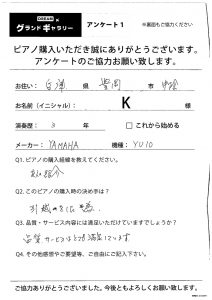 DREAM ×
グランドギャラリー
アンケート1
※裏面もご協力ください
ピアノ購入いただき誠にありがとうございます。
アンケートのご協力お願い致します。
お住い: 兵庫 県 市
お名前(イニシャル): K 様
演奏歴: 3 年 □これから始める
メーカー: YAMAHA 機種: YU10
Q1. ピアノの購入経緯を教えてください。
Q2. このピアノの購入時の決め手は?
Q3. 品質・サービス内容には満足いただけていますでしょうか?
品質 サービスともに満足しています
Q4. その他感想やご要望等、ご自由にご記入下さい。
ご協力ありがとうございました。今後ともよろしくお願い致します。